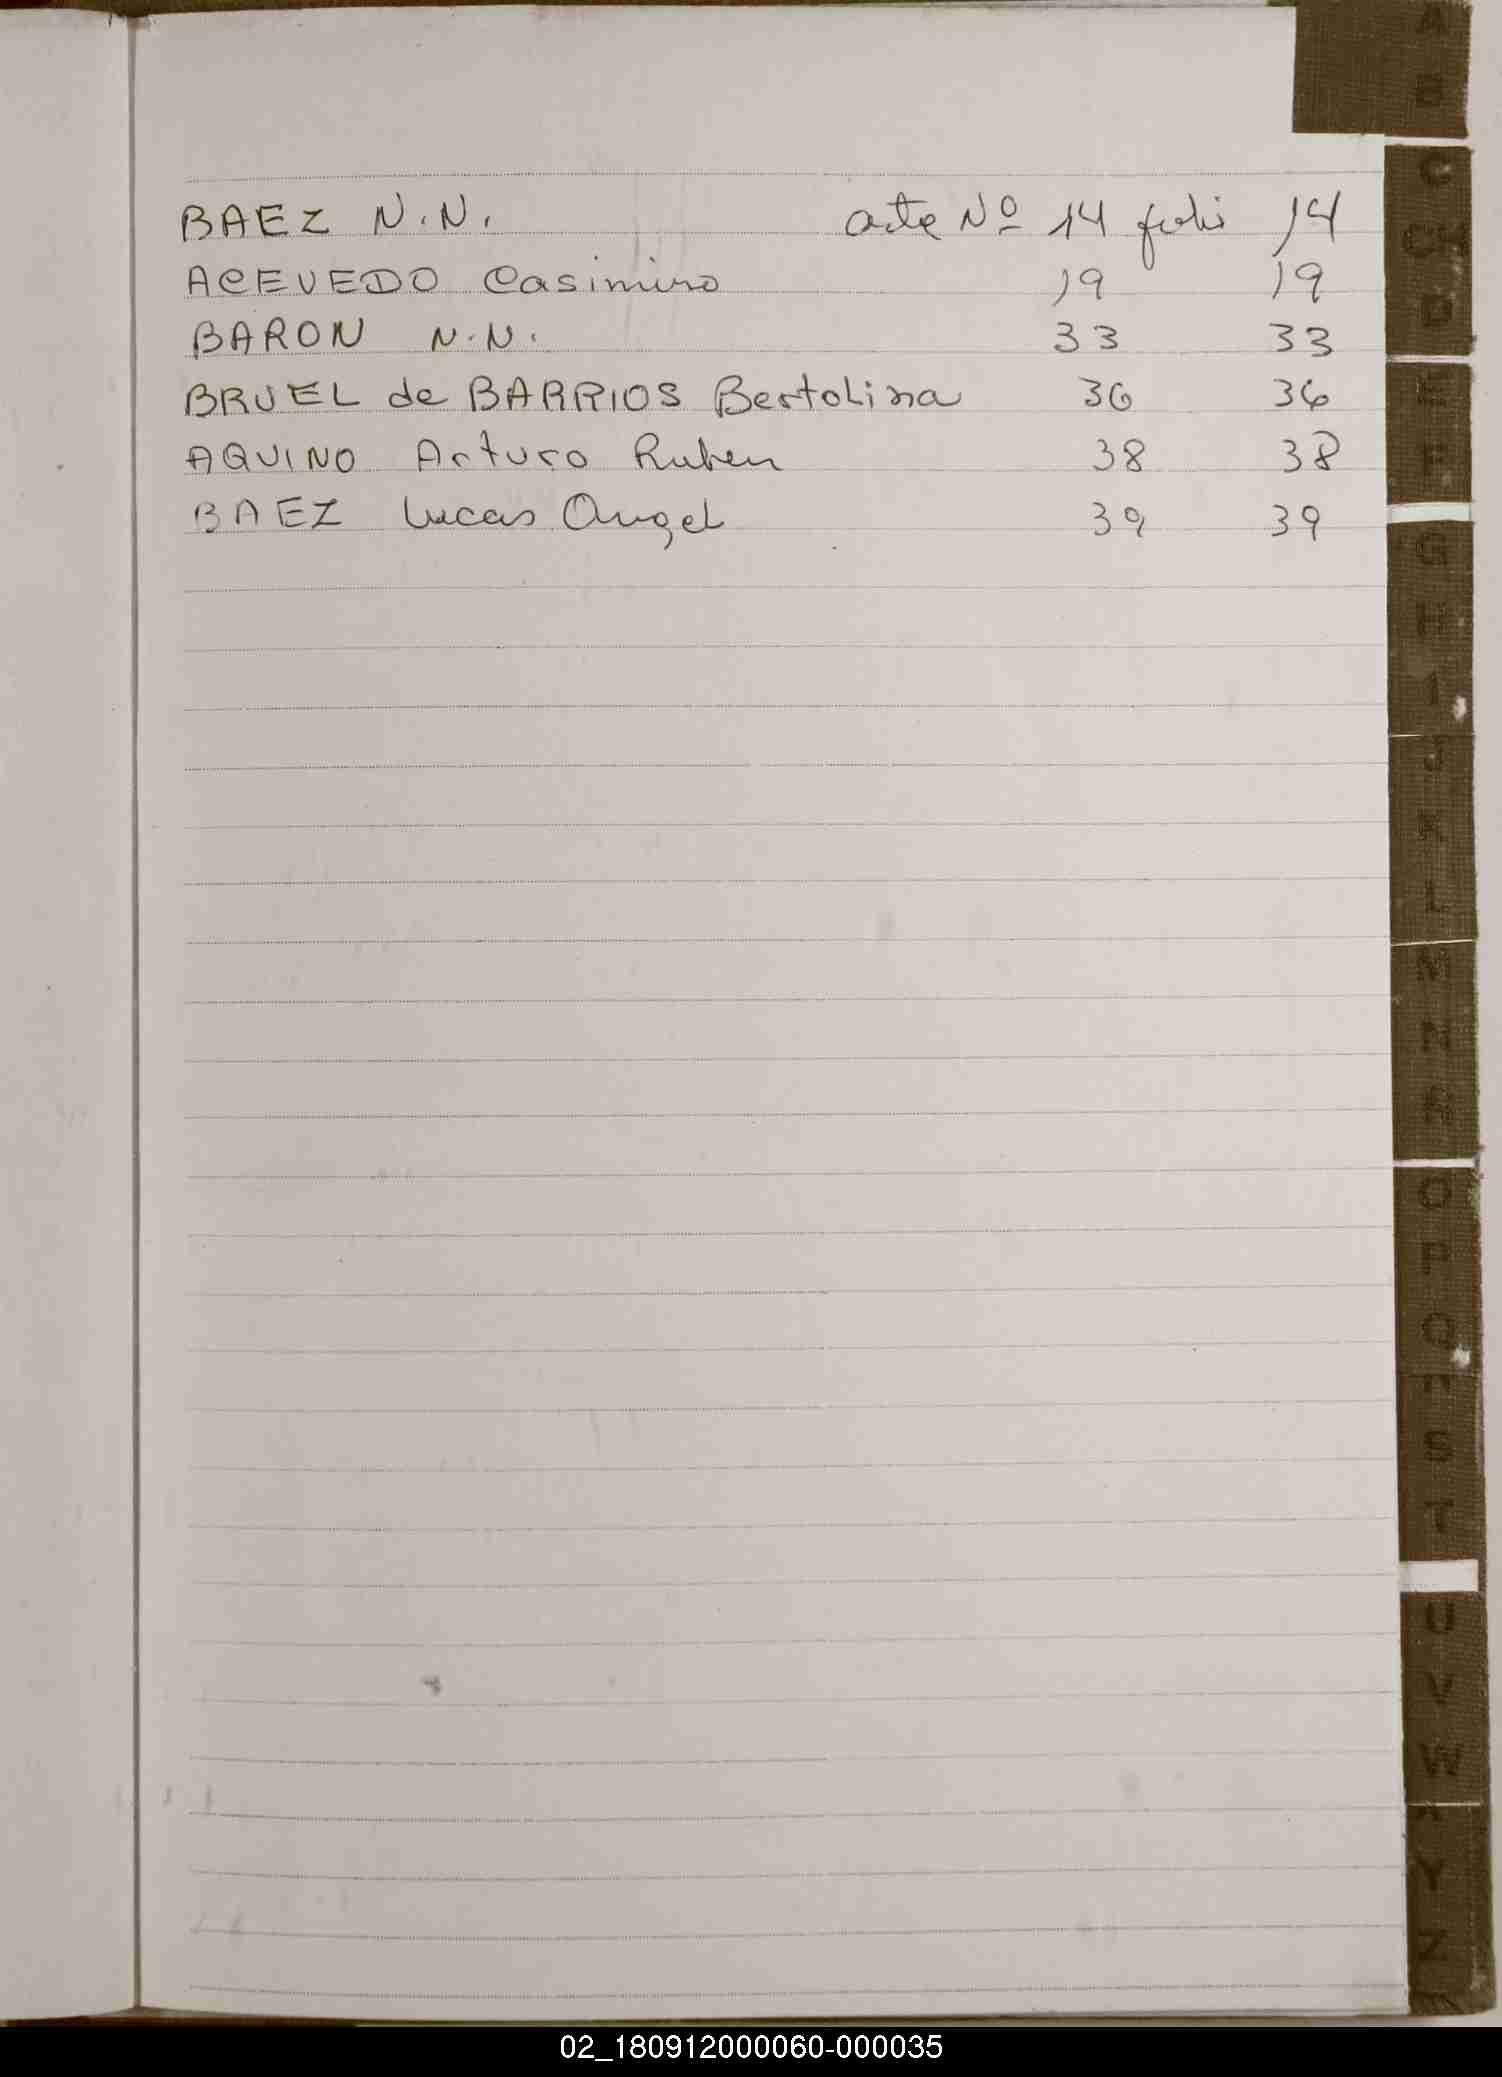 BAEZ N.N. acta Nº 14 folio 14
ACEVEDO Casimiro 19 19
BARON N.N. 33 33
BRUEL de BARRIOS Bertolina 36 36
AQUINO Arturo Ruben 38 38
BAEZ Lucas Angel 39 39
A
B
C
CH
D
E
F
G
H
I
J
K
L
M
N
Ñ
O
P
Q
R
S
T
U
V
W
X
Y
Z
02_180912000060-000035